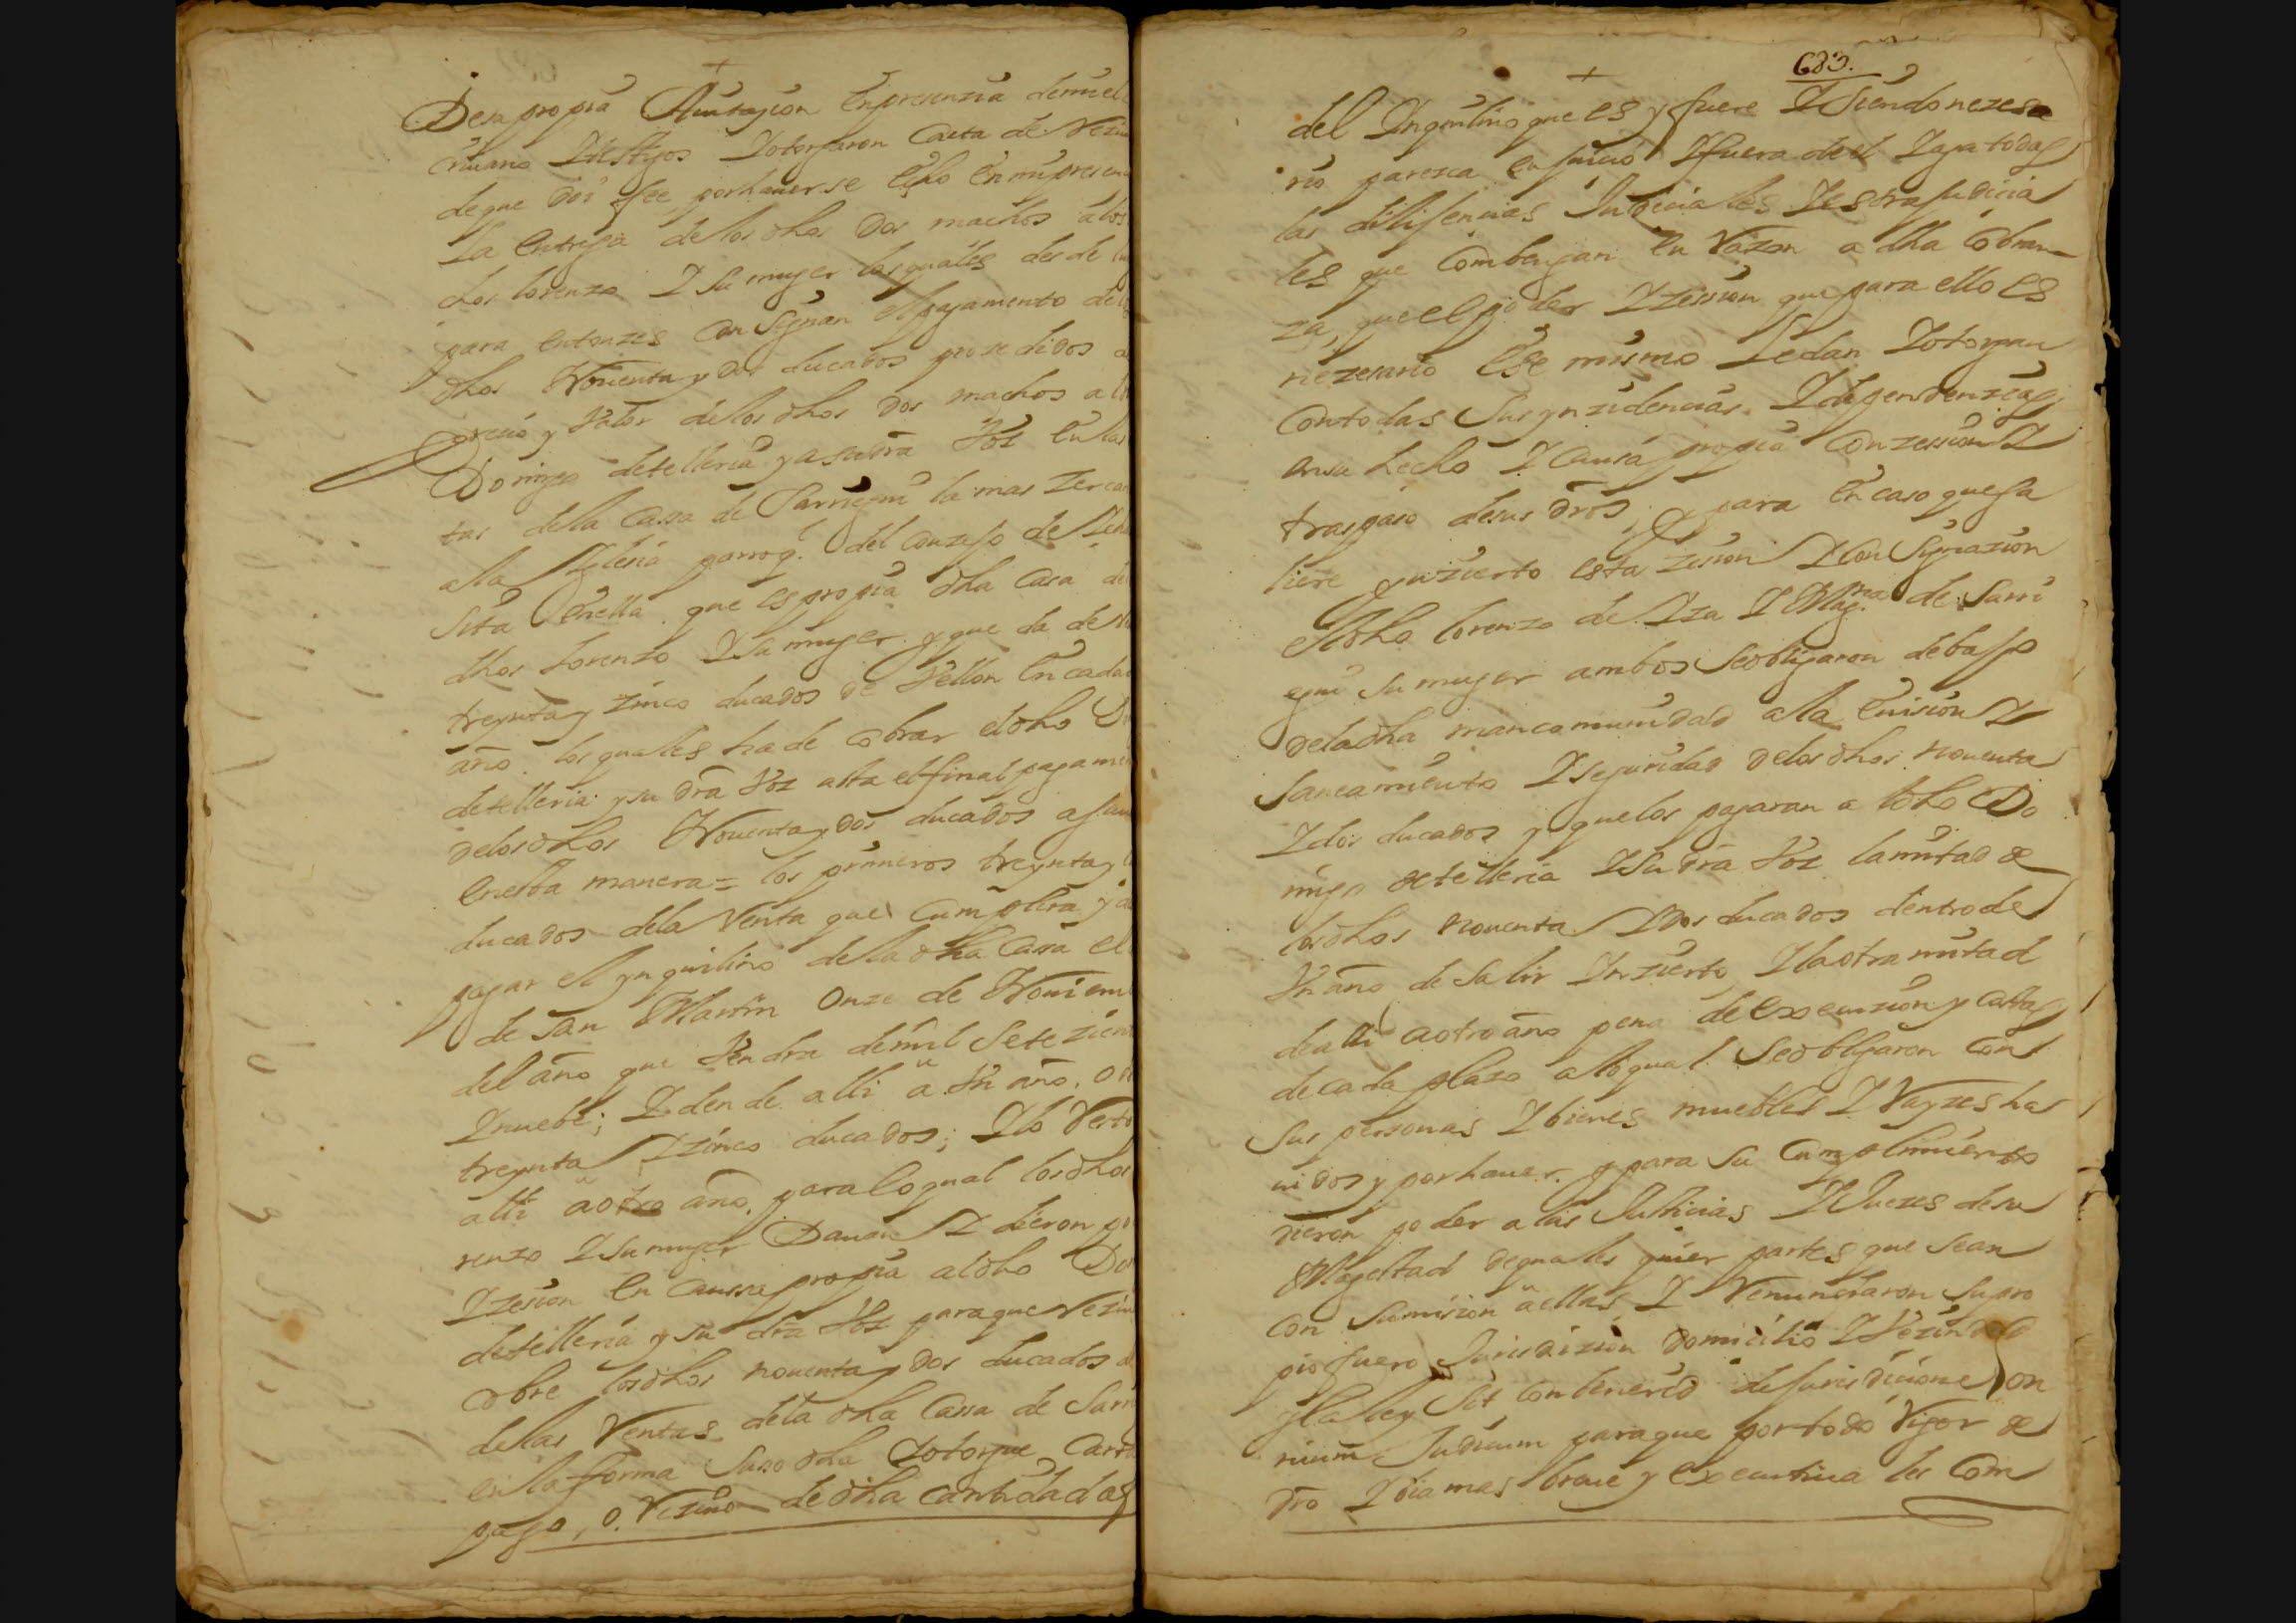 +
Desu propia Auitaçion en presenzia de mi el
criuano Y testigos Y otorgaron Carta de Rezi
de que doi fee por hauerse echo en mi presen
la entrega de los dhos dos machos a los
dhos lorenzo Y Su muger los quales des de
para entonzes Con Signan el pagamento de
dhos Nouenta y dos ducados prozedidos
prezio y Valor de los dhos dos machos a
Domingo detelleria y a su dra Voz en las
tas della Cassa de Sarriegui la mas zerca
a la Yglesia parroq.l del Conzejo de
Sita en ella que es propia dha Casa de
dhos Lorenzo Y Su muger y que da de
treynta y zinco ducados de Vellon en cada
año los quales ha de cobrar el dho Do
detelleria y su dra Voz asta el final pagame
de los dhos Nouenta y dos ducados
en esta manera = los primeros treynta y
ducados dela Renta que Cumplira y a
pagar el ynquilino della dha Cassa el
de San Martin Onze de Nouiem
del año que Vendra de mil Setezien
Y nuebe; Y dende alli a Vn año o
treynta Y zinco ducados; Y lo Resto
alli a otro año, para lo qual los dhos
renzo Y su muger Dauan Y dieron po
Y zesion en Caussa propia al dho Do
detelleria y su dra Voz para que Reziu
cobre los dhos nouenta y dos ducados
dellas Rentas dela dha Cassa de Sarri
en la forma Suso dha Y otorgue Carta
pago, o Reziuo de dha cantidad as
+
683.
del Ynquilino que es y fuere Y Siendo nezesa
rio paresca en juicio Y fuera de el Y aga todas
las dilijencias Judiciales Y Estrajudicia
les que Combengan en Razon a dha Cobran
za, que el poder Y zession que para ello es
nezesario Ese mismo Le dan Y otorgan
Con todas Sus ynzidencias Y dependenzias
en su hecho Y Causa propia Con zession Y
traspaso de sus dros, y para En caso que sa
liere ynzierto esta zesion Y Con Signazion
el dho lorenzo de Yza Y Mag.na de Sarri
egui Su muger ambos Se obligaron debajo
de la dha mancomunidad a la Euision Y
Saneamiento Y Seguridad delos dhos nouenta
Y dos ducados y que los pagaran a el dho Do
mingo detelleria Y Su dra Voz la mitad de
los dhos nouenta Y dos ducados dentro de
Vn año de Salir Ynzierto Y la otra mitad
de alli a otro año pena de Execuzion y Costas
de cada plazo a lo qual Se obligaron Con
Sus personas Y bienes muebles Y Rayzes ha
uidos y por hauer. y para Su Cumplimiento
dieron poder a las Justicias Y Juezes de su
Magestad de quales quier partes que Sean
Con Sumision a ellas Y Renunciaron Su pro
pio fuero Jurisdizion Domicilio Y Vezindad
y la ley Sit Conbenerid de Jurisdicione on
nium Judicum para que por todo Rigor de
dro Y bia mas breue y Executiua les Com